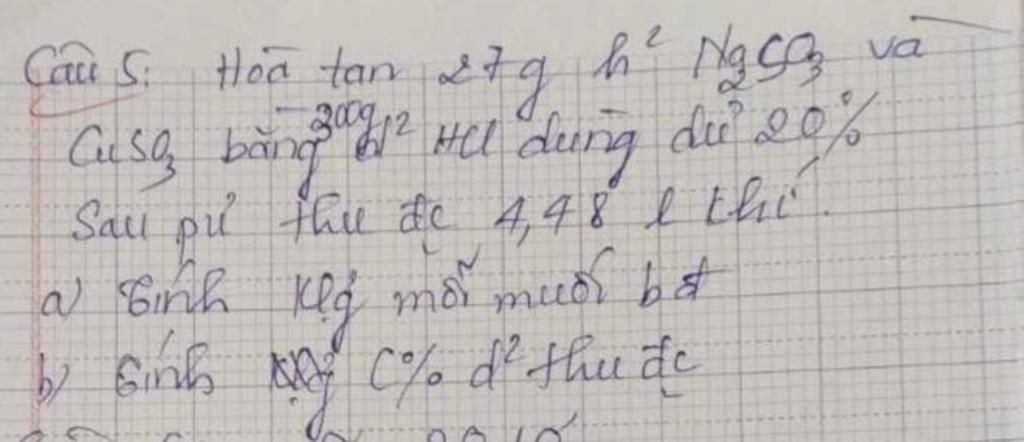 Câu 5: Hoà tan 27g h² Na2SO3 và
CuSO3 bằng 300g d² HCl dùng dư 20%
Sau pứ thu đc 4,48 l khí.
a) Tính klg mỗi muối bđ
b) Tính C% d² thu đc